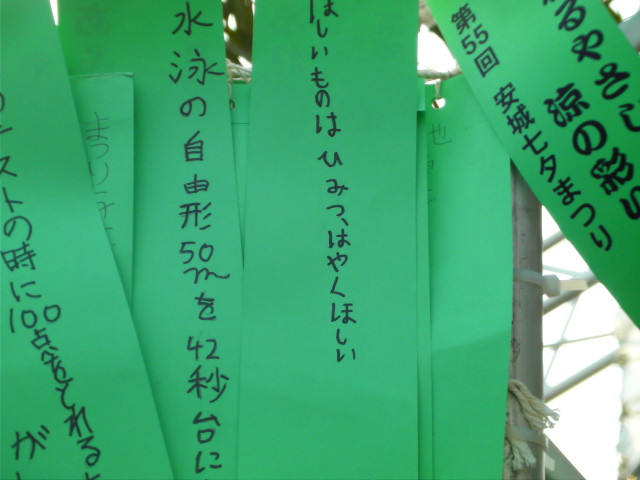 るやさし
涼の彩り
第55回 安城七夕まつり
ほしいものは ひみつ、はやくほしい
水泳の自由形50mを42秒台に
ストの時に100点をとれるよ
が
まつり
也